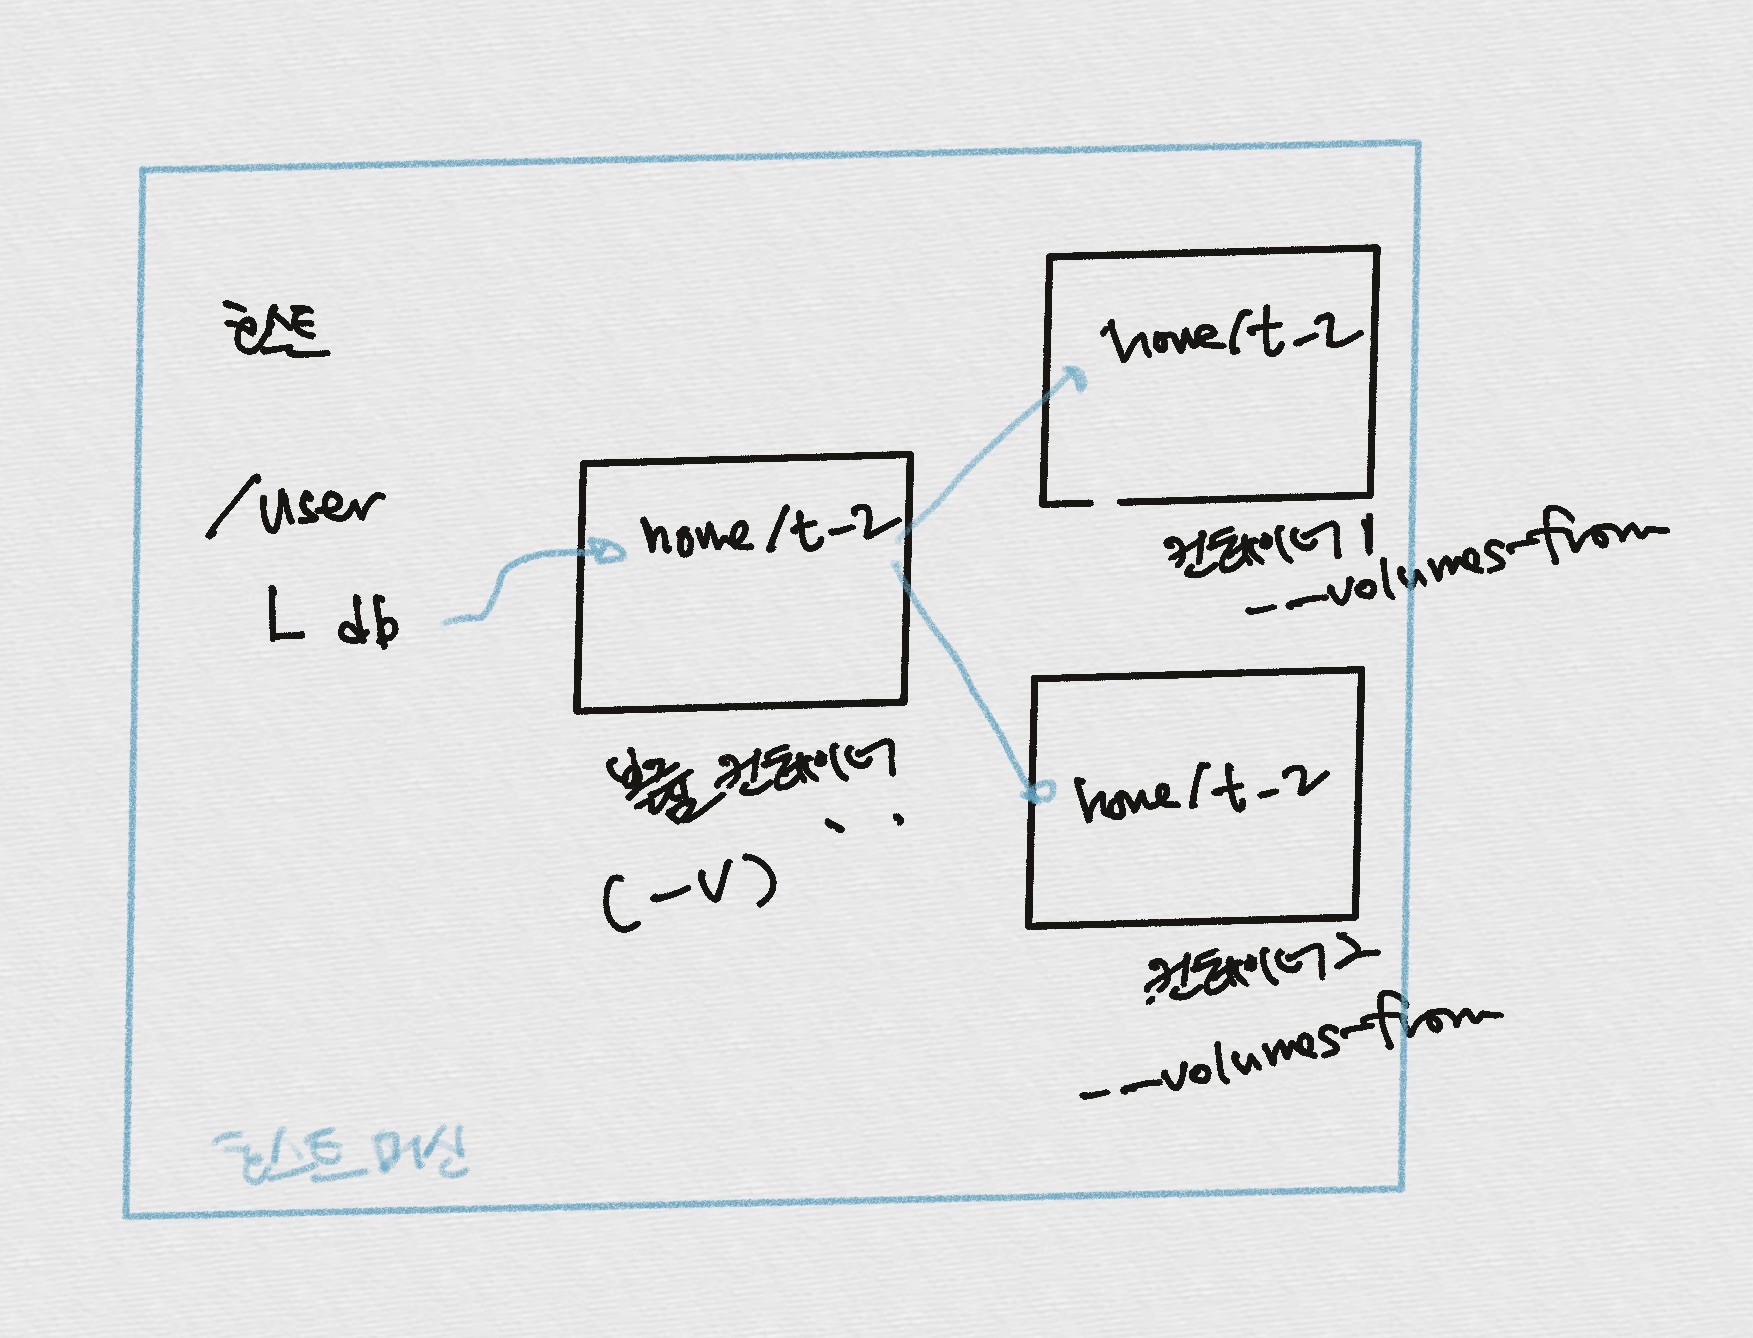 호스트
/user
ㄴ db
home/t_2
볼륨 컨테이너
(-v)
home/t_2
컨테이너1
--volumes-from
home/t_2
컨테이너2
--volumes-from
호스트 머신